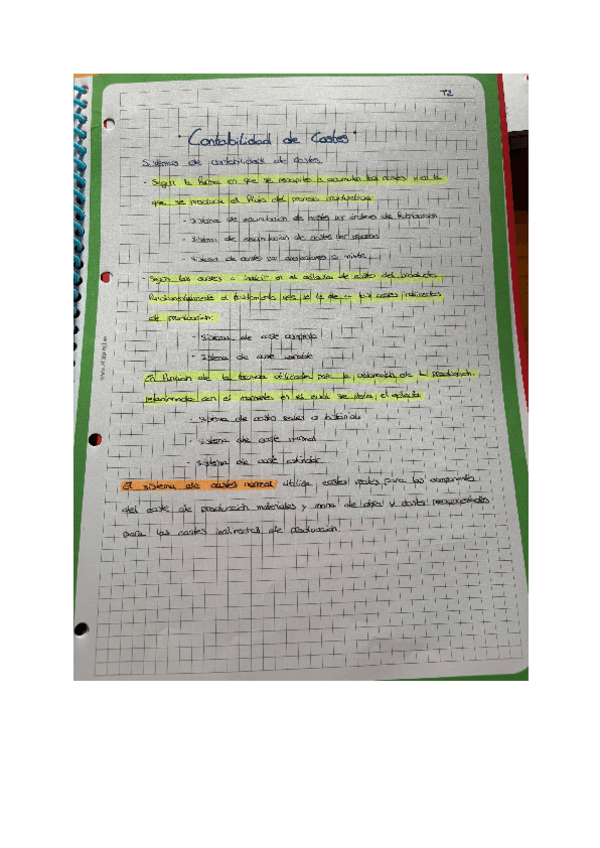 T2
"Contabilidad de Costes"
Sistemas de contabilidad de costes.
- Según la forma en que se recopilan o acumulan los costes y el
que se produce el flujo del proceso
- Sistema de acumulación de costes por órdenes de fabricación
- Sistema de acumulación de costes por
- Sistema de costes por operaciones o
- Según los costes a incluir en el cálculo de coste del producto.
Fundamentalmente el tratamiento que se le da a los costes indirectos
de producción:
- Sistema de coste completo
- Sistema de coste variable
En función de la técnica utilizada para la valoración de la producción,
relacionada con el momento en el cual se obtiene el cálculo
- Sistema de costes reales o históricos
- Sistema de coste normal
- Sistema de coste estándar
El sistema de costes normal utiliza costes reales para los componentes
del coste de producción materiales y mano de obra y costes predeterminados
para los costes indirectos de producción.